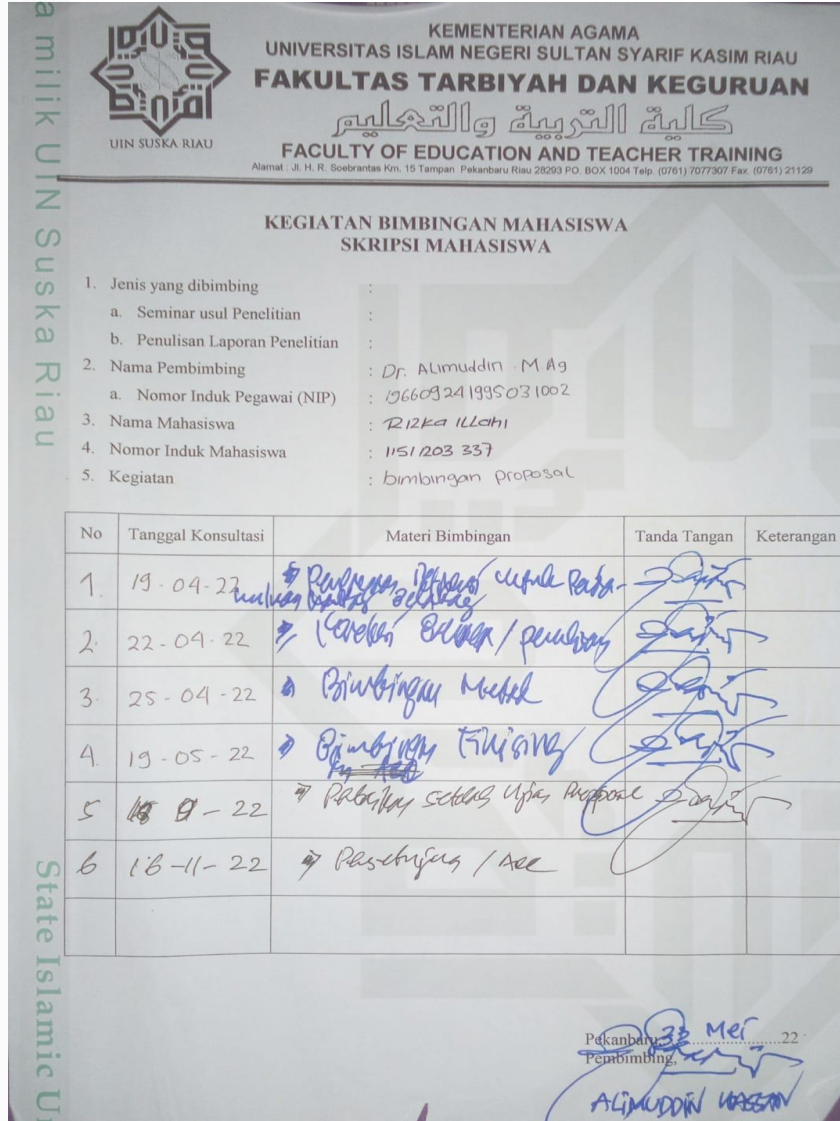 a milik UIN Suska Riau
State Islamic U
UIN SUSKA RIAU
KEMENTERIAN AGAMA
UNIVERSITAS ISLAM NEGERI SULTAN SYARIF KASIM RIAU
FAKULTAS TARBIYAH DAN KEGURUAN
كلية التربية والتعليم
FACULTY OF EDUCATION AND TEACHER TRAINING
Alamat : Jl. H. R. Soebrantas Km. 15 Tampan Pekanbaru Riau 28293 PO. BOX 1004 Telp. (0761) 7077307 Fax. (0761) 21129
KEGIATAN BIMBINGAN MAHASISWA
SKRIPSI MAHASISWA
1. Jenis yang dibimbing :
a. Seminar usul Penelitian :
b. Penulisan Laporan Penelitian :
2. Nama Pembimbing : Dr. Alimuddin M Ag
a. Nomor Induk Pegawai (NIP) : 196609241995031002
3. Nama Mahasiswa : Rizka Illahi
4. Nomor Induk Mahasiswa : 1151 1203 337
5. Kegiatan : bimbingan proposal
No Tanggal Konsultasi Materi Bimbingan Tanda Tangan Keterangan
1. 19-04-22
2. 22-04-22
3. 25-04-22 Bimbingan
4. 19-05-22 Bimbingan
5 - 22 Ujian Proposal
6 16-11-22 / Acc
Pekanbaru, Mei 22
Pembimbing,
ALIMUDDIN HASSAN